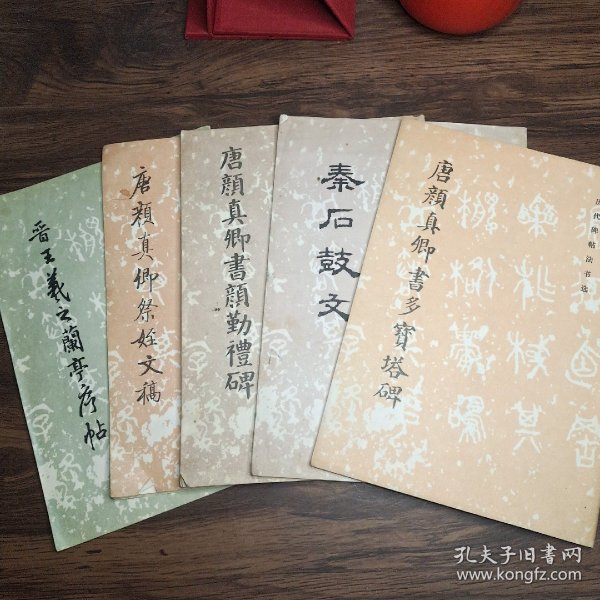 晋王羲之蘭亭序帖
唐顏真卿祭姪文稿
唐顏真卿書顏勤禮碑
秦石鼓文
唐顏真卿書多寶塔碑
历代碑帖法书选
孔夫子旧书网
www.kongfz.com